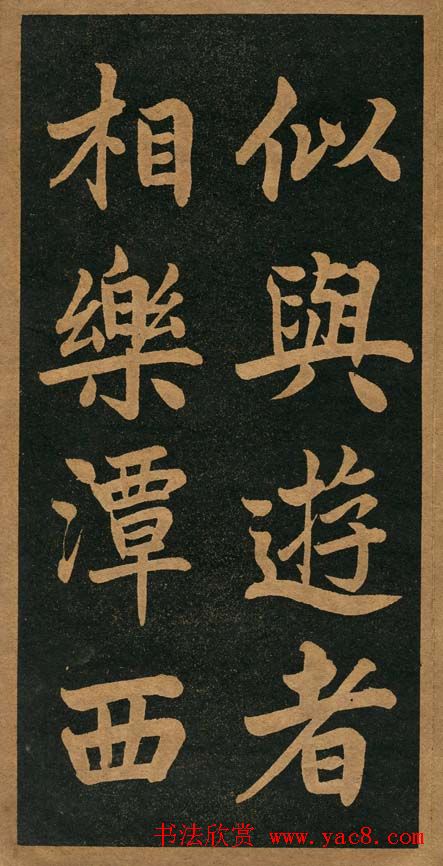 似與遊者
相樂潭西
书法欣赏 www.yac8.com